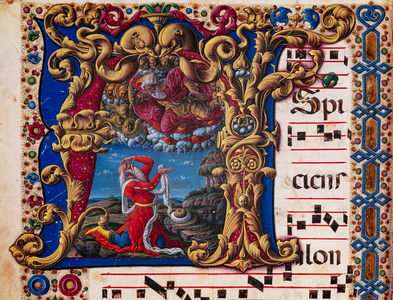 ASpi
ciens
alon